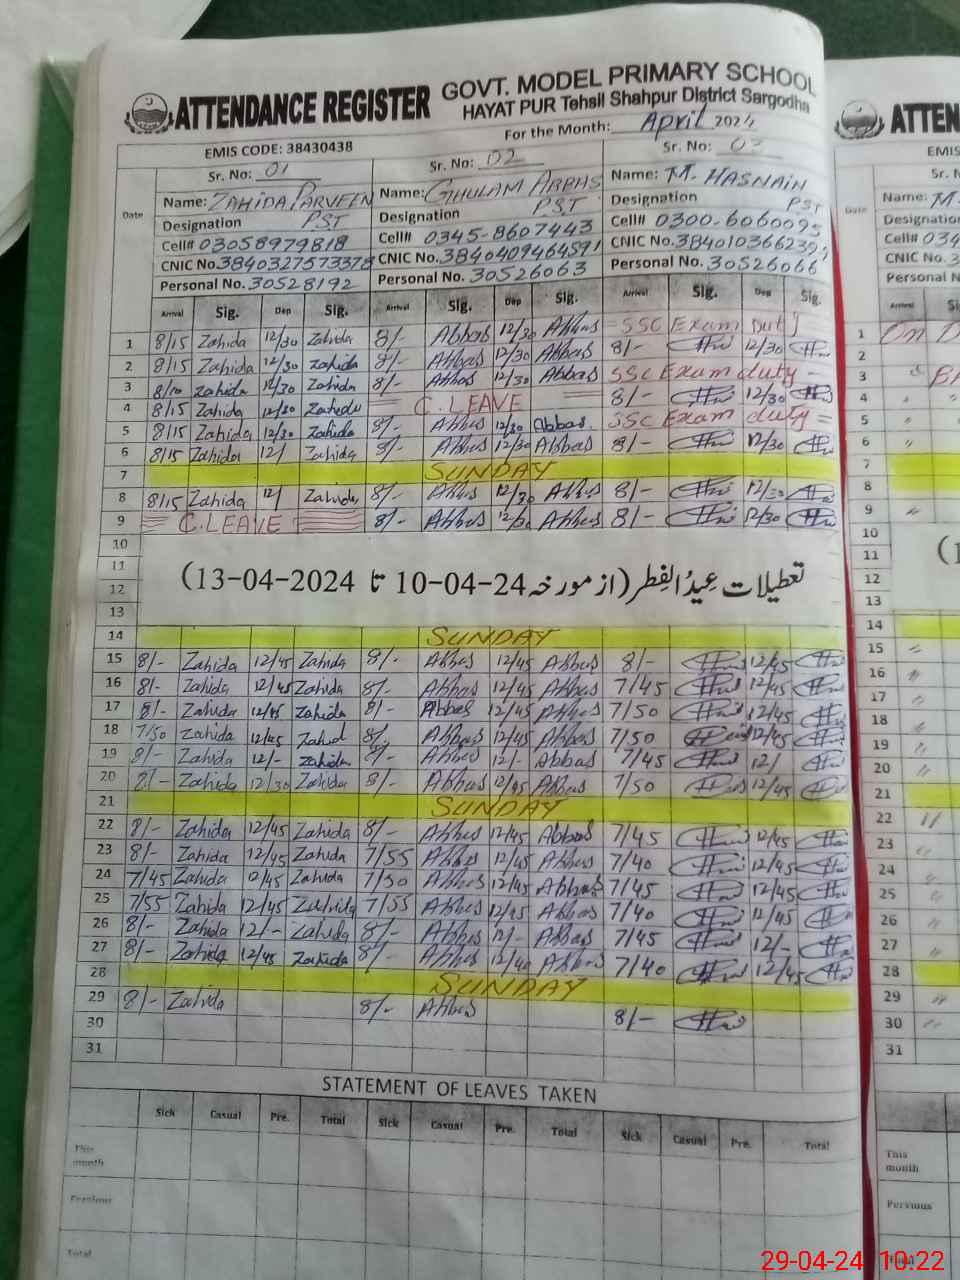 ATTENDANCE REGISTER GOVT. MODEL PRIMARY SCHOOL
HAYAT PUR Tehsil Shahpur District Sargodha
For the Month: April 2024
EMIS CODE: 38430438
Sr. No: 01 Sr. No: 02 Sr. No: 03
Date Name: ZAHIDA PARVEEN Name: GHULAM ABBAS Name: M. HASNAIN
Designation PST Designation PST Designation PST
Cell# 03058979818 Cell# 0345-8607443 Cell# 0300-6060095
CNIC No. 3840327573378 CNIC No. 3840409464591 CNIC No.
Personal No. 30528192 Personal No. 30526063 Personal No. 30526066
Arrival Sig. Dep Sig. Arrival Sig. Dep Sig. Arrival Sig. Dep Sig.
1 8/15 Zahida 12/30 Zahida 8/- Abbas 12/30 Abbas SSC Exam Duty
2 8/15 Zahida 12/30 Zahida 8/- Abbas 12/30 Abbas 8/- 12/30
3 8/10 Zahida 12/30 Zahida 8/- Abbas 12/30 Abbas SSC Exam duty
4 8/15 Zahida 12/30 Zahida C.LEAVE 8/- 12/30
5 8/15 Zahida 12/30 Zahida 8/- Abbas 12/30 Abbas SSC Exam duty
6 8/15 Zahida 12/ Zahida 8/- Abbas 12/30 Abbas 8/- 12/30
7 SUNDAY
8 8/15 Zahida 12/ Zahida 8/- Abbas 12/30 Abbas 8/- 12/30
9 C.LEAVE 8/- Abbas 12/30 Abbas 8/- 12/30
10
11
تعطیلات عیدُ الفِطر (از مورخہ 24-04-10 تا 2024-04-13)
12
13
14 SUNDAY
15 8/- Zahida 12/45 Zahida 8/- Abbas 12/45 Abbas 8/- 12/45
16 8/- Zahida 12/45 Zahida 8/- Abbas 12/45 Abbas 7/45 12/45
17 8/- Zahida 12/45 Zahida 8/- Abbas 12/45 Abbas 7/50 12/45
18 7/50 Zahida 12/45 Zahid 8/- Abbas 12/45 Abbas 7/50 12/45
19 8/- Zahida 12/- Zahida 8/- Abbas 12/- Abbas 7/45 12/
20 8/- Zahida 12/30 Zahida 8/- Abbas 12/45 Abbas 7/50 12/45
21 SUNDAY
22 8/- Zahida 12/45 Zahida 8/- Abbas 12/45 Abbas 7/45 12/45
23 8/- Zahida 12/45 Zahida 7/55 Abbas 12/45 Abbas 7/40 12/45
24 7/45 Zahida 12/45 Zahida 7/50 Abbas 12/45 Abbas 7/45 12/45
25 7/55 Zahida 12/45 Zahida 7/55 Abbas 12/45 Abbas 7/40 12/45
26 8/- Zahida 12/- Zahida 8/- Abbas 12/- Abbas 7/45 12/-
27 8/- Zahida 12/45 Zahida 8/- Abbas Abbas 7/40 12/45
28 SUNDAY
29 8/- Zahida 8/- Abbas 8/-
30
31
STATEMENT OF LEAVES TAKEN
Sick Casual Pre. Total Sick Casual Pre. Total Sick Casual Pre. Total
This month
Previous
Total
ATTEN
EMIS
Sr. N
Date Name: M.
Designation
Cell# 034
CNIC N
Personal
Arrival
1 On D
2
3
4
5
6
7
8
9
10
11
12
13
14
15
16
17
18
19
20
21
22
23
24
25
26
27
28
29
30
31
This month
Previous
29-04-24 10:22